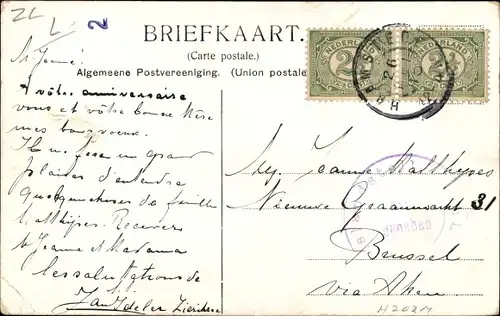 2
BRIEFKAART.
(Carte postale.)
Algemeene Postvereeniging. (Union postale
NEDERLAND
NEDERLAND
à vôtre anniversaire
vous et vôtre bonne Mère
mes bonvoeux.
Il me fera un grand
plaisir d'entendre
quelquechose de famille
Matthijses. Recevez
Jeanne et Madama
les salutations de
Jan Ideler
Mej. Jeanne Matthijses
Nieuwe Graanmarkt 31
Brussel
via Aken
H202M